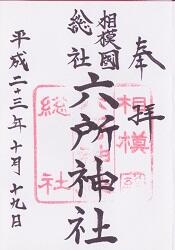 奉拝
相模國
総社
六所神社
平成二十三年十月十九日
相模國
総社